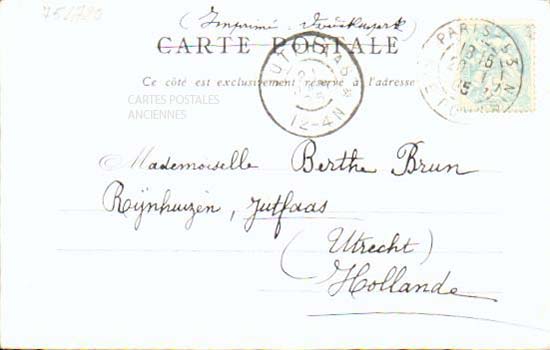 75/780
(Imprimé. Drucksache)
CARTE POSTALE
Ce côté est exclusivement réservé à l'adresse
CARTES POSTALES
ANCIENNES
PARIS 53
05
12-4N
Mademoiselle Berthe Brun
Rijnhuizen, Jutfaas
(Utrecht)
Hollande